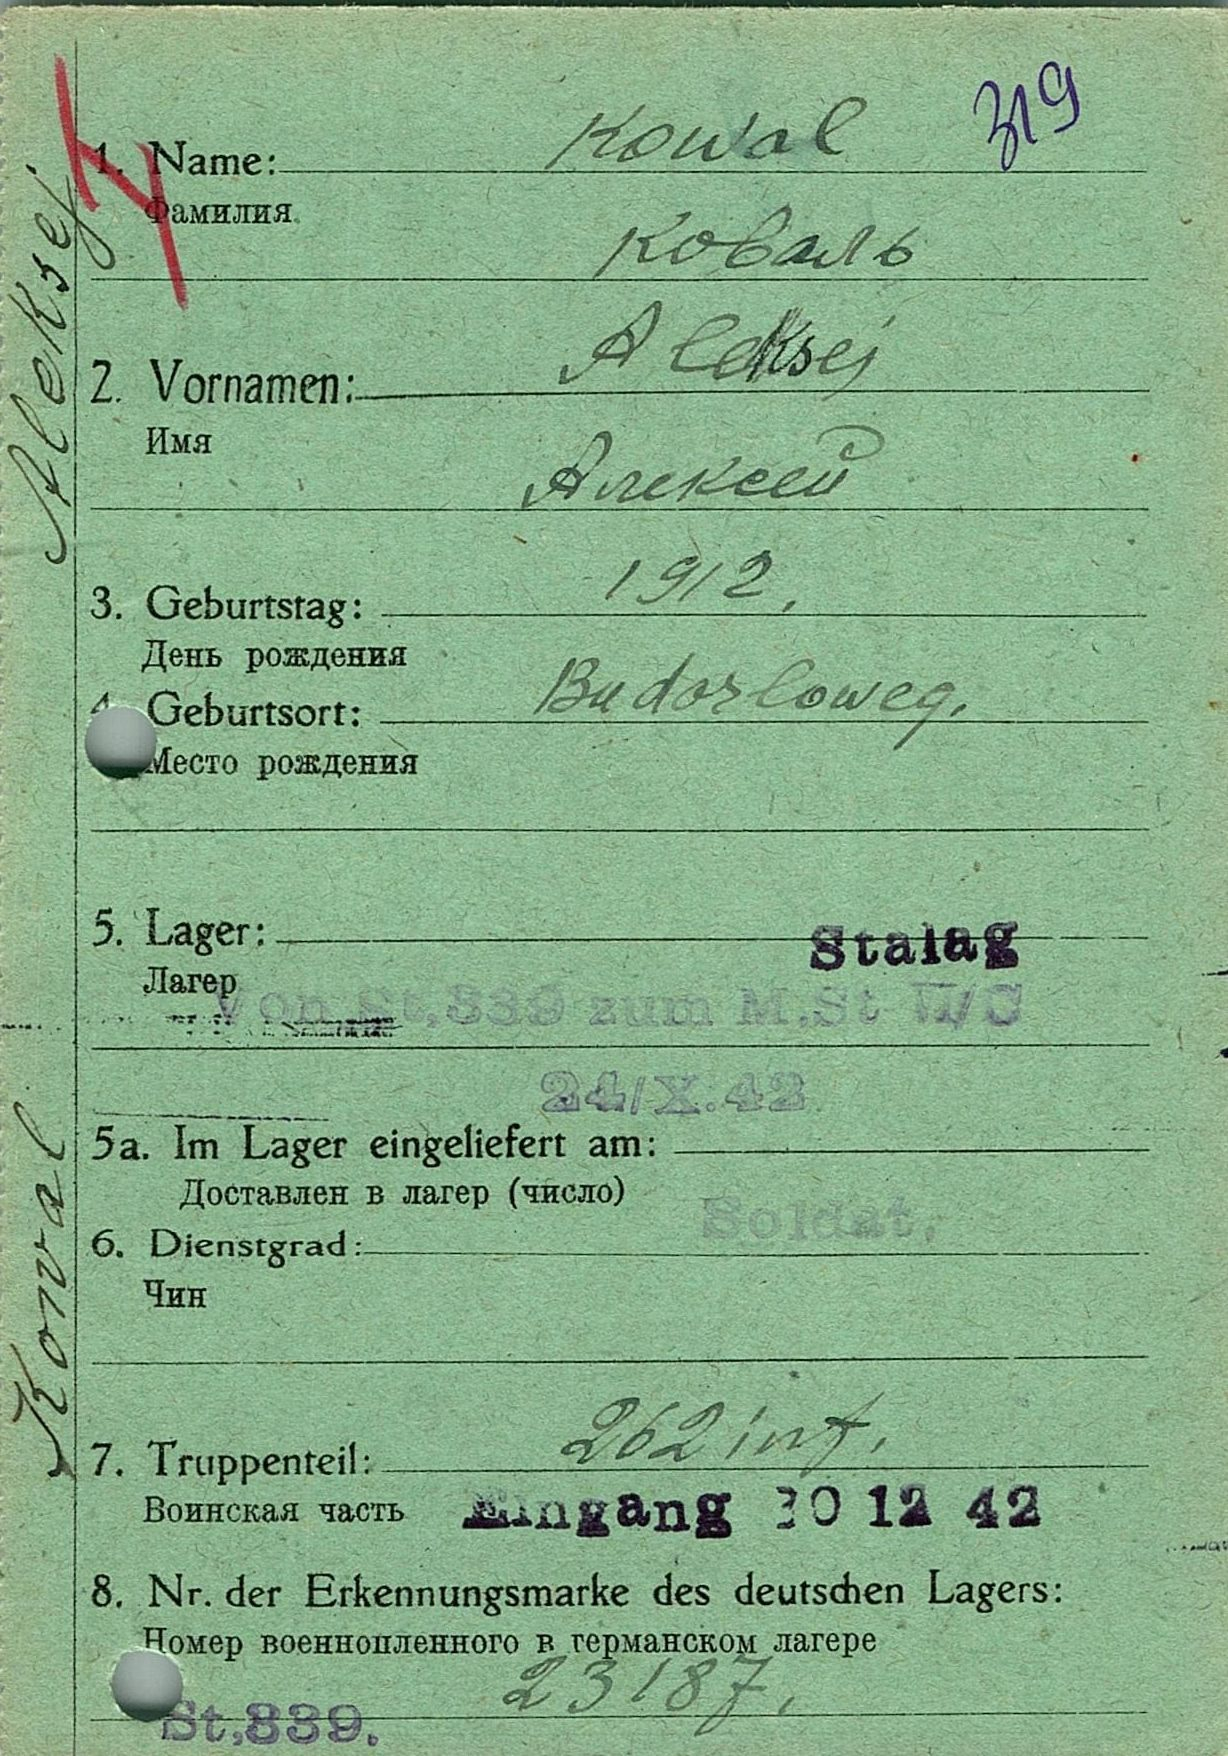 319
1. Name: Kowal
Фамилия
Коваль
2. Vornamen: Aleksej
Имя
Алексей
3. Geburtstag: 1912.
День рождения
4. Geburtsort:
Место рождения
5. Lager: Stalag
Лагер
Von St.339 zum M.St II/S
24/X.42
5a. Im Lager eingeliefert am:
Доставлен в лагер (число)
6. Dienstgrad: Soldat.
Чин
7. Truppenteil: 262 inf.
Воинская часть Eingang 12 42
8. Nr. der Erkennungsmarke des deutschen Lagers:
Номер военнопленного в германском лагере
23187.
St.339.
Konval Aleksej